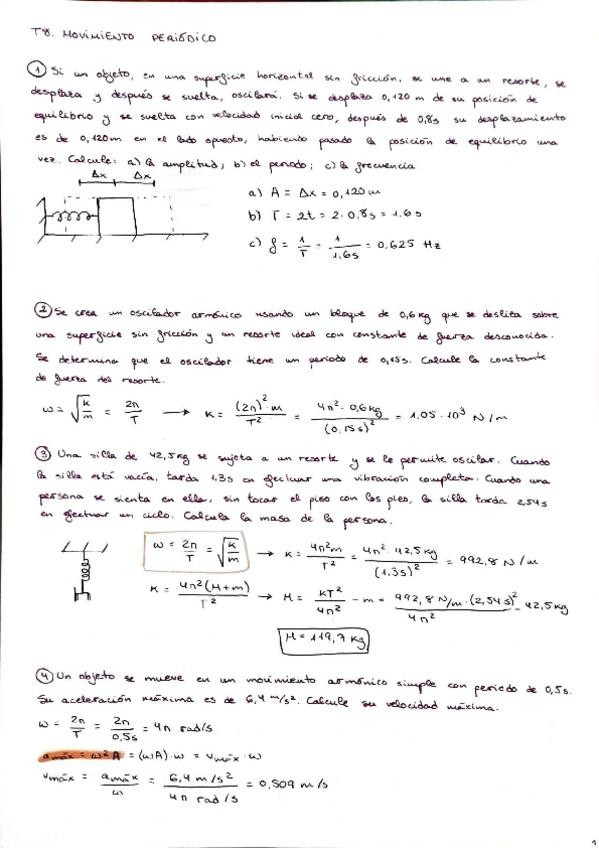 T8. MOVIMIENTO PERIÓDICO
① Si un objeto, en una superficie horizontal sin fricción, se une a un resorte, se
desplaza y después se suelta, oscilará. Si se desplaza 0,120 m de su posición de
equilibrio y se suelta con velocidad inicial cero, después de 0,8s su desplazamiento
es de 0,120m en el lado opuesto, habiendo pasado la posición de equilibrio una
vez. Calcule: a) la amplitud; b) el periodo; c) la frecuencia
Δx Δx
a) A = Δx = 0,120 m
b) T = 2t = 2·0,8s = 1.6s
c) f = 1/T = 1/1.6s = 0,625 Hz
② Se crea un oscilador armónico usando un bloque de 0,6kg que se desliza sobre
una superficie sin fricción y un resorte ideal con constante de fuerza desconocida.
Se determina que el oscilador tiene un periodo de 0,15s. Calcule la constante
de fuerza del resorte.
ω = √(k/m) = 2π/T → K = (2π)²·m/T² = 4π²·0.6kg/(0,15s)² = 1,05·10³ N/m
③ Una silla de 42,5kg se sujeta a un resorte y se le permite oscilar. Cuando
la silla está vacía, tarda 1.3s en efectuar una vibración completa. Cuando una
persona se sienta en ella, sin tocar el piso con los pies, la silla tarda 2,54s
en efectuar un ciclo. Calcula la masa de la persona.
ω = 2π/T = √(k/m) → K = 4π²m/T² = 4π²·42,5kg/(1,3s)² = 992,8 N/m
K = 4π²(M+m)/T² → M = KT²/4π² - m = 992,8 N/m·(2,54s)²/4π² - 42,5kg
M = 119,7 kg
④ Un objeto se mueve en un movimiento armónico simple con periodo de 0,5s.
Su aceleración máxima es de 6,4 m/s². Calcule su velocidad máxima.
ω = 2π/T = 2π/0,5s = 4π rad/s
amáx = ω²A = (ωA)·ω = vmáx·ω
vmáx = amáx/ω = 6,4 m/s²/4π rad/s = 0,509 m/s
1